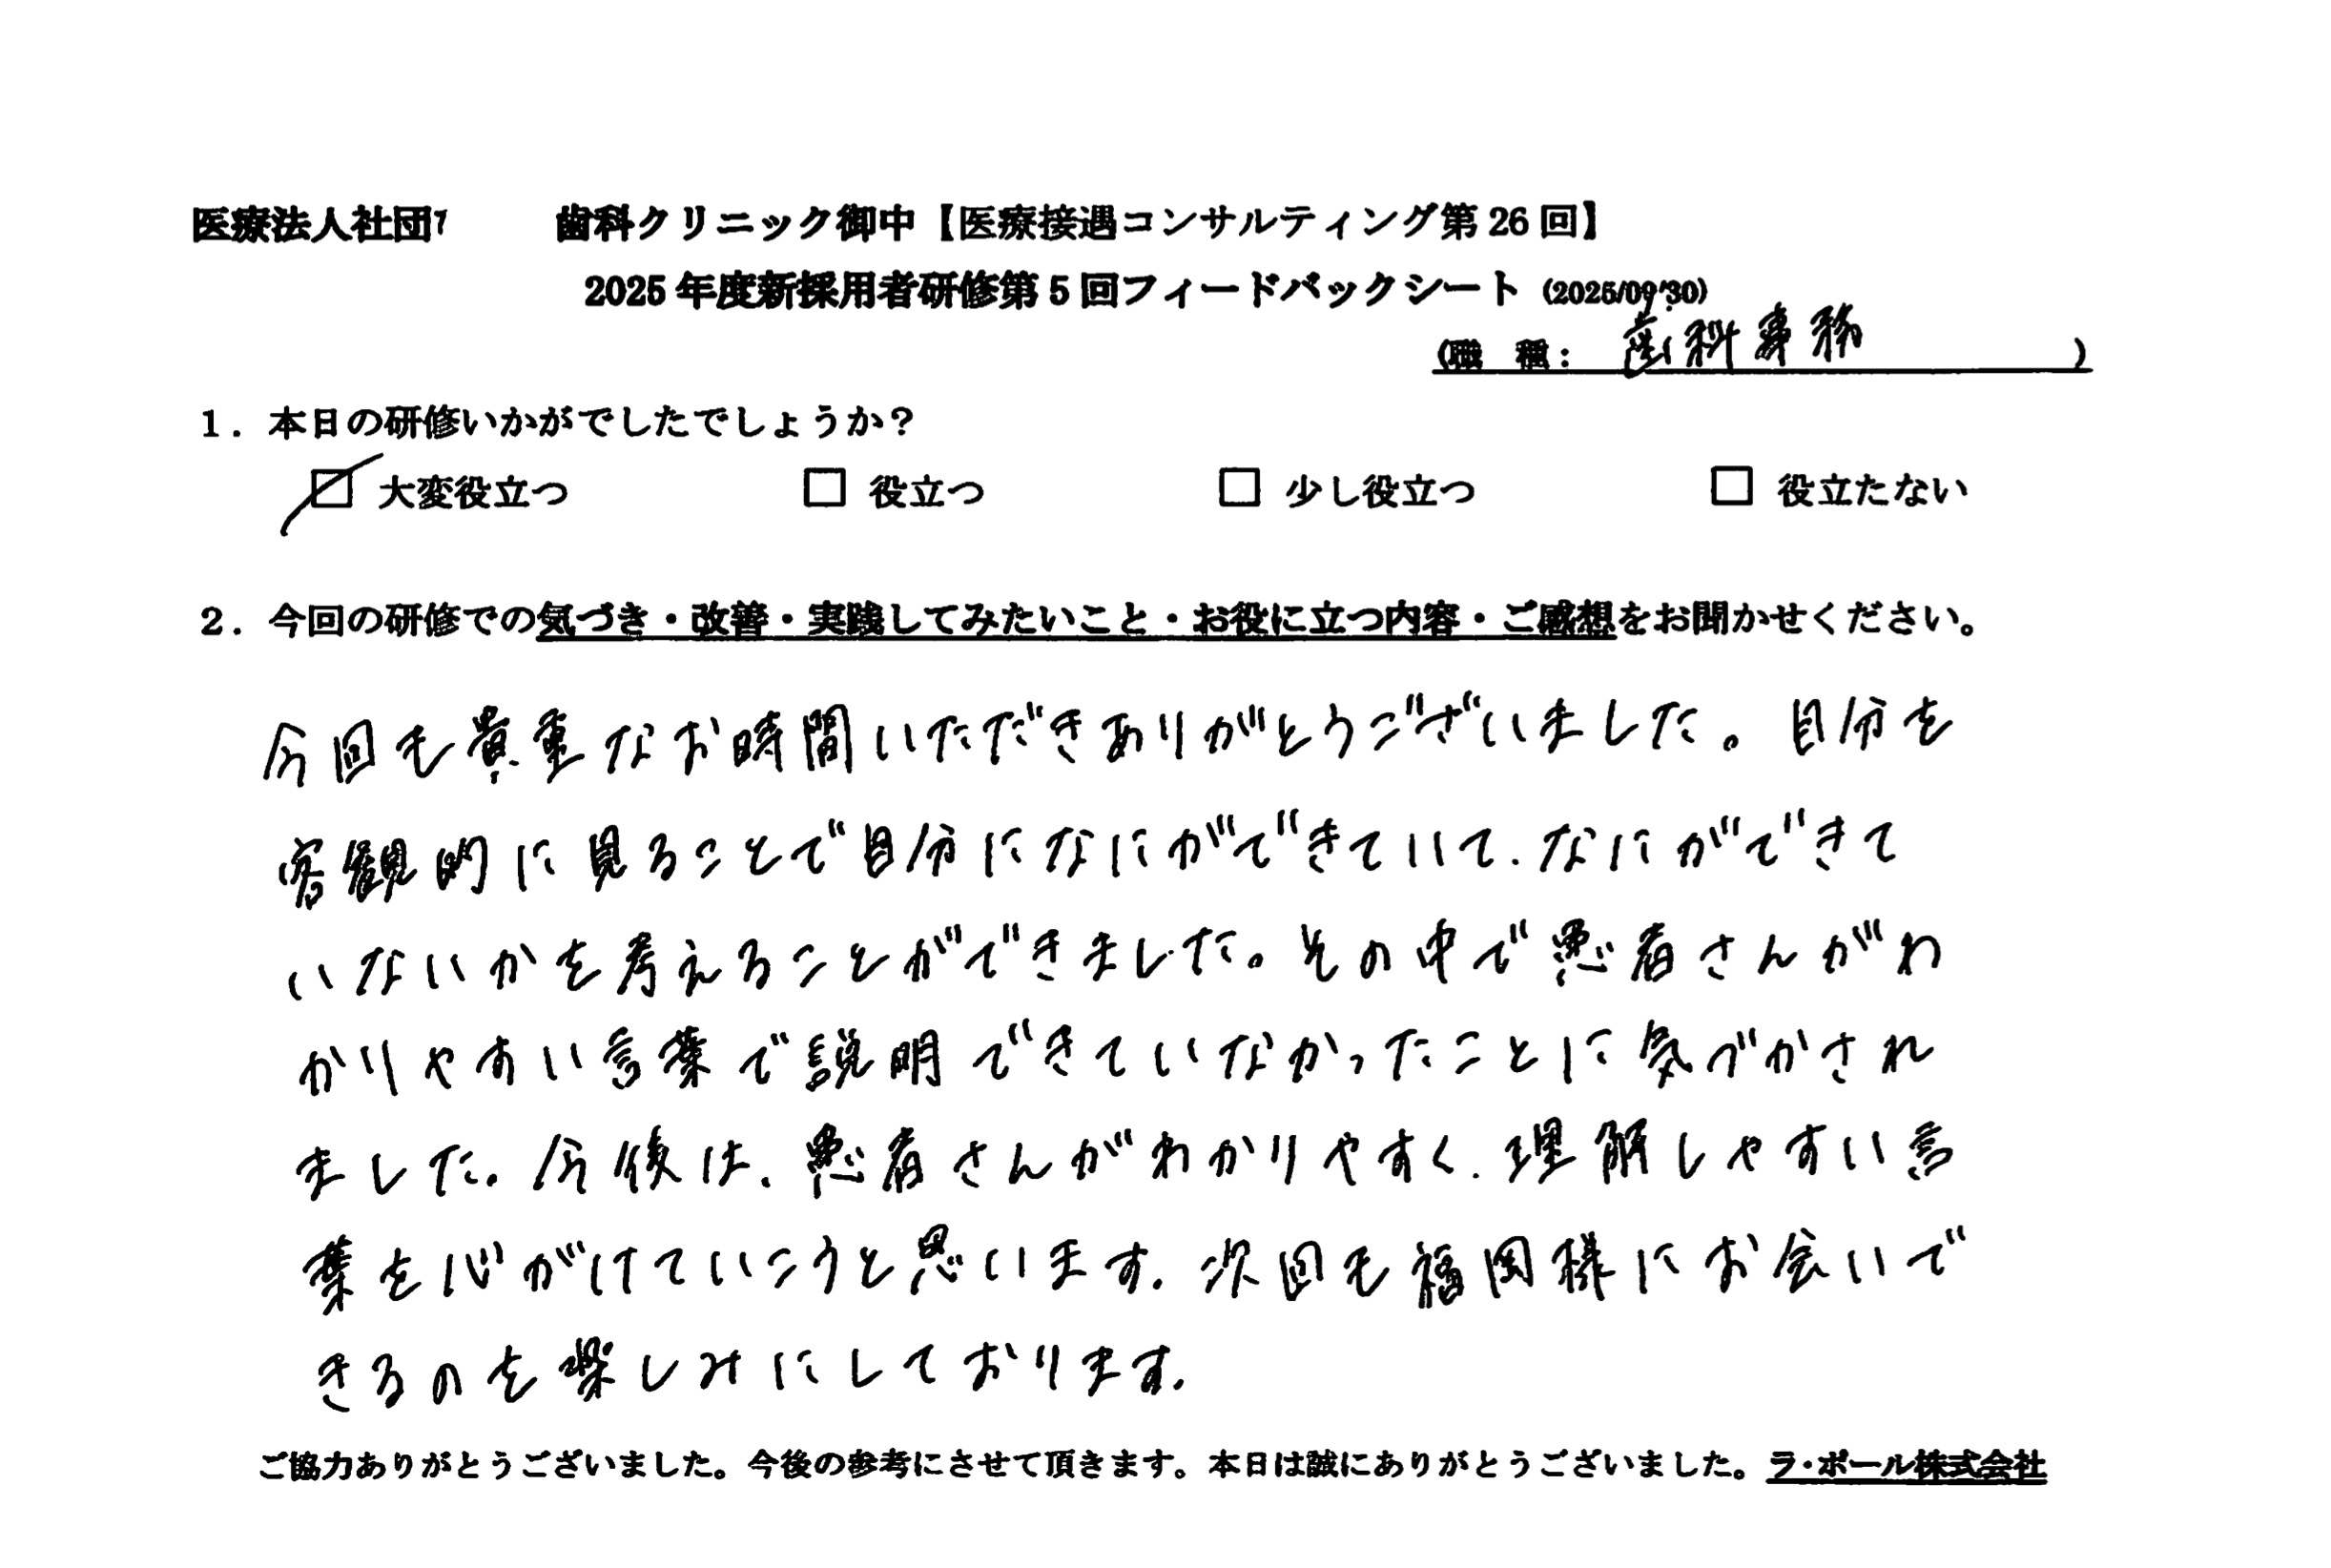 医療法人社団 歯科クリニック御中【医療接遇コンサルティング第26回】
2025年度新採用者研修第5回フィードバックシート (2025/09/30)
(職 種： 歯科事務 )
1．本日の研修いかがでしたでしょうか？
☑ 大変役立つ □ 役立つ □ 少し役立つ □ 役立たない
2．今回の研修での気づき・改善・実践してみたいこと・お役に立つ内容・ご感想をお聞かせください。
今回も貴重なお時間いただきありがとうございました。自分を
客観的に見ることで自分になにができていて、なにができて
いないかを考えることができました。その中で患者さんがわ
かりやすい言葉で説明できていなかったことに気づかされ
ました。今後は、患者さんがわかりやすく、理解しやすい言
葉を心がけていこうと思います。次回も福岡様にお会いで
きるのを楽しみにしております。
ご協力ありがとうございました。今後の参考にさせて頂きます。本日は誠にありがとうございました。ラ・ポール株式会社